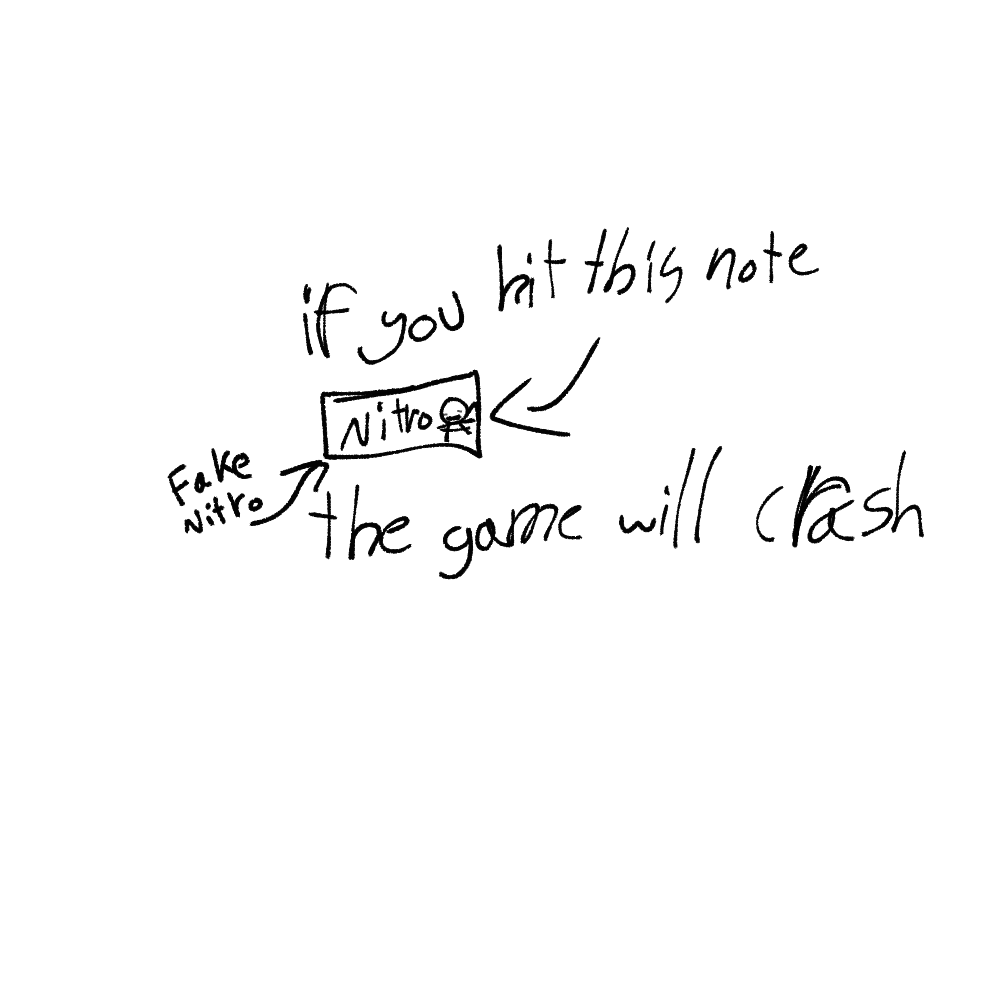 if you hit this note
Nitro
Fake
Nitro
the game will crash